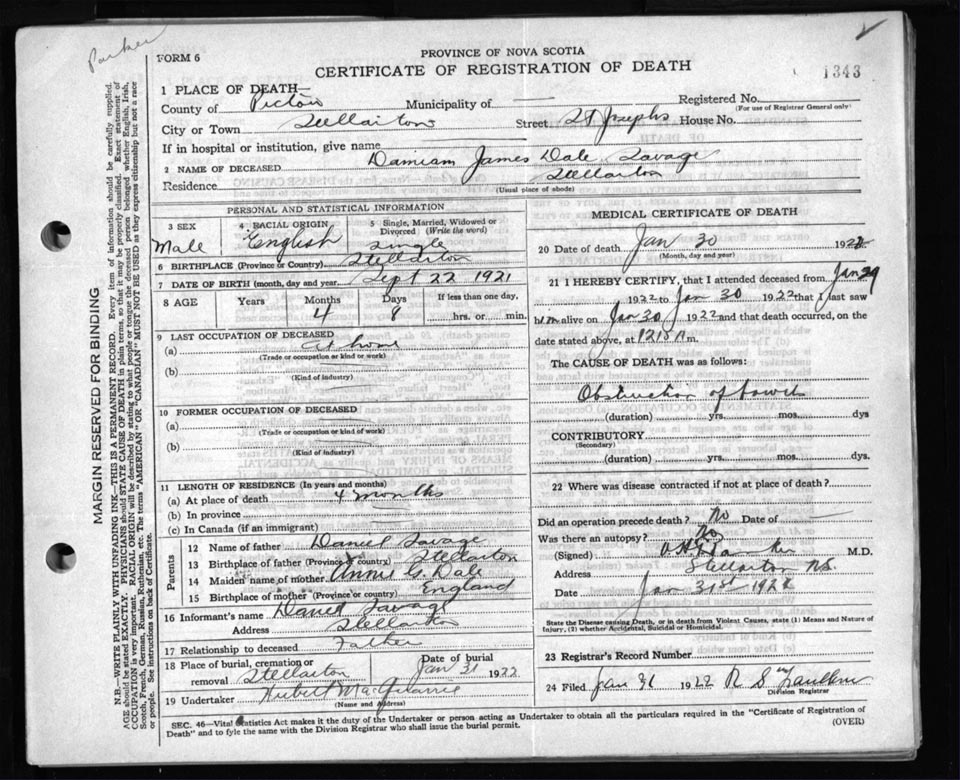 Parker
FORM 6
PROVINCE OF NOVA SCOTIA
CERTIFICATE OF REGISTRATION OF DEATH
1343
1 PLACE OF DEATH—
County of Pictou Municipality of — Registered No.
(For use of Registrar General only)
City or Town Stellarton Street St Josephs House No.
If in hospital or institution, give name
2 NAME OF DECEASED Damiam James Dale Savage
Residence Stellarton
(Usual place of abode)
PERSONAL AND STATISTICAL INFORMATION
3 SEX Male
4 RACIAL ORIGIN English
5 Single, Married, Widowed or Divorced (Write the word) single
6 BIRTHPLACE (Province or Country) Stellarton
7 DATE OF BIRTH (month, day and year) Sept 22 1921
8 AGE Years Months Days If less than one day,
4 8 hrs. or min.
9 LAST OCCUPATION OF DECEASED
(a) at home
(Trade or occupation or kind or work)
(b)
(Kind of industry)
10 FORMER OCCUPATION OF DECEASED
(a)
(Trade or occupation or kind of work)
(b)
(Kind of industry)
11 LENGTH OF RESIDENCE (In years and months)
(a) At place of death 4 months
(b) In province
(c) In Canada (if an immigrant)
Parents
12 Name of father Daniel Savage
13 Birthplace of father (Province or country) Stellarton
14 Maiden name of mother Annie G. Dale
15 Birthplace of mother (Province or country) England
16 Informant's name Daniel Savage
Address Stellarton
17 Relationship to deceased Father
18 Place of burial, cremation or removal Stellarton Date of burial Jan 31 1922
19 Undertaker Hubert
(Name and Address)
MEDICAL CERTIFICATE OF DEATH
20 Date of death Jan 30 1922
(Month, day and year)
21 I HEREBY CERTIFY, that I attended deceased from Jan 29
1922 to Jan 30 1922 that I last saw
him alive on Jan 30 1922 and that death occurred, on the
date stated above, at 1215 A m.
The CAUSE OF DEATH was as follows:
Obstruction of bowels
(duration) yrs. mos. dys
CONTRIBUTORY
(Secondary)
(duration) yrs. mos. ds.
22 Where was disease contracted if not at place of death?
Did an operation precede death? No Date of
Was there an autopsy? No
(Signed) M.D.
Address Stellarton N.S.
Date Jan 31st 1922
State the Disease causing Death, or in death from Violent Causes, state (1) Means and Nature of
Injury, (2) whether Accidental, Suicidal or Homicidal.
23 Registrar's Record Number
24 Filed Jan 31 1922 R S
Division Registrar
SEC. 46—Vital Statistics Act makes it the duty of the Undertaker or person acting as Undertaker to obtain all the particulars required in the "Certificate of Registration of
Death" and to fyle the same with the Division Registrar who shall issue the burial permit.
(OVER)
MARGIN RESERVED FOR BINDING
N.B.—WRITE PLAINLY WITH UNFADING INK—THIS IS A PERMANENT RECORD. Every item of information should be carefully supplied.
AGE should be stated EXACTLY. PHYSICIANS should STATE CAUSE OF DEATH in plain terms, so that it may be properly classified. Exact statement of
OCCUPATION is very important. RACIAL ORIGIN will be described by stating to what people or tongue the deceased person belonged whether English, Irish,
Scotch, French, German, Russian, Ruthenian, etc. The terms "AMERICAN" OR "CANADIAN" MUST NOT BE USED as they express citizenship but not a race
or people. See instructions on back of Certificate.